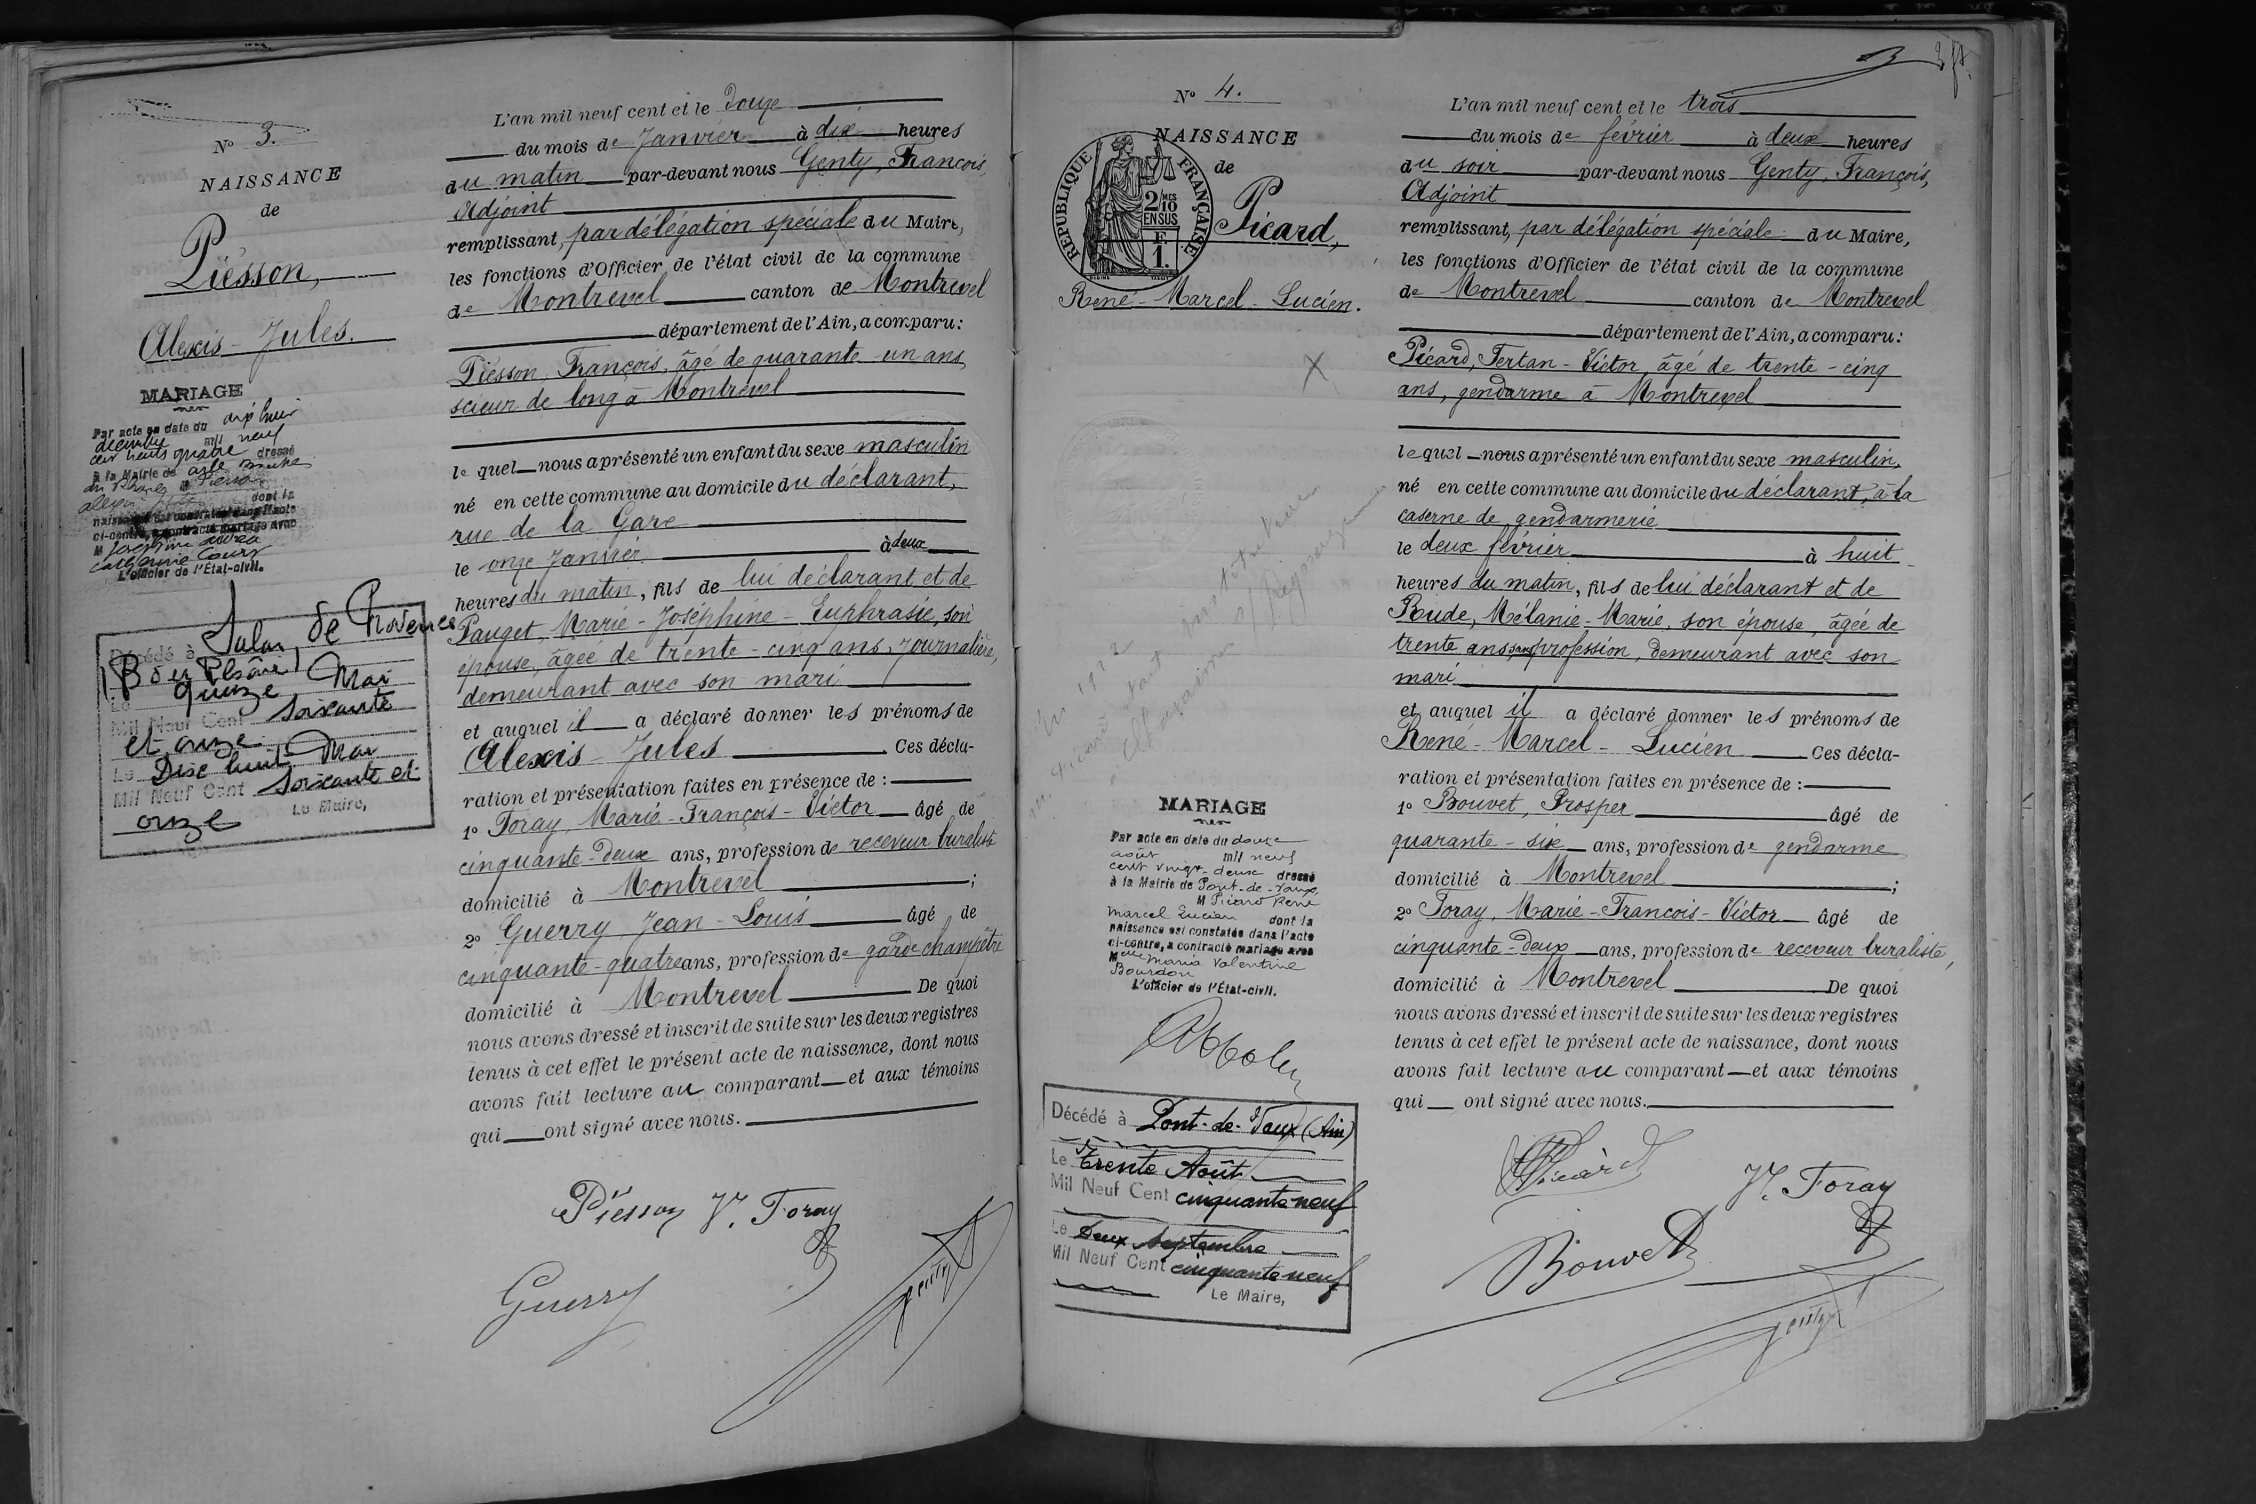 N° 3.
NAISSANCE
de
Piësson,
Alexis - Jules.
MARIAGE
Par acte en date du dix huit
décembre mil neuf
cent trente quatre dressé
à la Mairie de Arles Bouches
du Rhône M Piesson
Alexis Jules dont la
naissance est constatée dans l'acte
ci-contre, a contracté mariage avec
M Joséphine
Catherine
L'officier de l'État-civil.
Décédé à Salon de Provence
(B du Rhône)
Le quinze Mai
Mil Neuf Cent soixante
et onze
Le Dix huit Mai
Mil Neuf Cent soixante et
onze Le Maire,
L'an mil neuf cent et le douze
du mois de Janvier à dix heures
du matin par-devant nous Genty, François,
Adjoint
remplissant, par délégation spéciale du Maire,
les fonctions d'Officier de l'état civil de la commune
de Montrevel canton de Montrevel
département de l'Ain, a comparu :
Piësson, François, âgé de quarante-un ans,
scieur de long à Montrevel
le quel nous a présenté un enfant du sexe masculin
né en cette commune au domicile du déclarant,
rue de la Gare
le onze Janvier à deux
heures du matin, fils de lui déclarant et de
Pauget, Marie-Joséphine-Euphrasie, son
épouse, âgée de trente-cinq ans, journalière,
demeurant avec son mari
et auquel il a déclaré donner les prénoms de
Alexis-Jules Ces décla-
ration et présentation faites en présence de :
1° Foray, Marie-François-Victor âgé de
cinquante-deux ans, profession de receveur buraliste
domicilié à Montrevel ;
2° Guerry Jean-Louis âgé de
cinquante-quatre ans, profession de garde champêtre
domicilié à Montrevel De quoi
nous avons dressé et inscrit de suite sur les deux registres
tenus à cet effet le présent acte de naissance, dont nous
avons fait lecture au comparant et aux témoins
qui ont signé avec nous.
Piësson V. Foray
Guerry Genty
N° 4.
NAISSANCE
de
REPUBLIQUE FRANÇAISE
2/10MES
EN SUS
F.
1.
Picard,
René-Marcel-Lucien.
X
En 1922
MARIAGE
Par acte en date du douze
août mil neuf
cent vingt-deux dressé
à la Mairie de Pont-de-Vaux
M Picard René
Marcel Lucien dont la
naissance est constatée dans l'acte
ci-contre, a contracté mariage avec
Melle Maria Valentine
Bourdon
L'officier de l'État-civil.
Décédé à Pont-de-Vaux (Ain)
Le trente Août
Mil Neuf Cent cinquante neuf
Le Deux Septembre
Mil Neuf Cent cinquante neuf
Le Maire,
L'an mil neuf cent et le trois
du mois de février à deux heures
du soir par-devant nous Genty, François,
Adjoint
remplissant, par délégation spéciale du Maire,
les fonctions d'Officier de l'état civil de la commune
de Montrevel canton de Montrevel
département de l'Ain, a comparu :
Picard, Tertan-Victor, âgé de trente-cinq
ans, gendarme à Montrevel
le quel nous a présenté un enfant du sexe masculin,
né en cette commune au domicile du déclarant, à la
caserne de gendarmerie
le deux février à huit
heures du matin, fils de lui déclarant et de
Rude, Mélanie-Marie, son épouse, âgée de
trente ans, sans profession, demeurant avec son
mari
et auquel il a déclaré donner les prénoms de
René-Marcel-Lucien Ces décla-
ration et présentation faites en présence de :
1° Bouvet, Prosper âgé de
quarante-six ans, profession de gendarme
domicilié à Montrevel ;
2° Foray, Marie-François-Victor âgé de
cinquante-deux ans, profession de receveur buraliste,
domicilié à Montrevel De quoi
nous avons dressé et inscrit de suite sur les deux registres
tenus à cet effet le présent acte de naissance, dont nous
avons fait lecture au comparant et aux témoins
qui ont signé avec nous.
Picard V. Foray
Bouvet
Genty